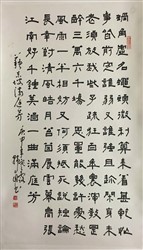 蝸角虛名蠅頭微利算來着甚乾忙
事皆前定誰弱又誰強且趁閒身未
老須放我些子疏狂百年裏渾教是
醉三萬六千場思量能幾許憂愁
風雨一半相妨又何須抵死說短論
長幸對清風皓月苔茵展雲幕高張
江南好千鍾美酒一曲滿庭芳
蘇東坡滿庭芳